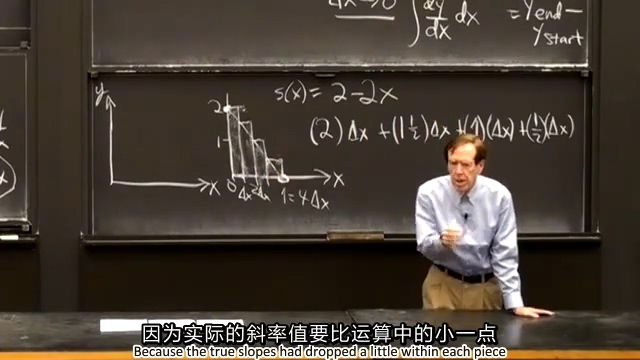 Δx→0 ∫ dy/dx dx = y end −
y start
s(x) = 2 − 2x
(2) Δx + (1 1/2) Δx + (1)(Δx) + (1/2)(Δx)
y
2
1
x
0 Δx 2Δx 1 = 4Δx
x
因为实际的斜率值要比运算中的小一点
Because the true slopes had dropped a little within each piece